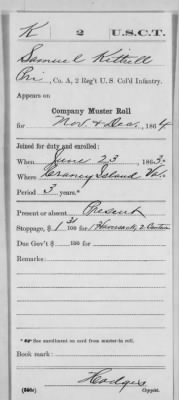 K 2 U.S.C.T.
Samuel Kittell
Pri, Co. A, 2 Reg't U. S. Col'd Infantry.
Appears on
Company Muster Roll
for Nov. & Dec., 1864
Joined for duty and enrolled:
When June 23, 1863.
Where Craney Island Va.
Period 3 years.*
Present or absent Present
Stoppage, $ 1 31/100 for Haversack, 2 Canteen
Due Gov't $ 100 for
Remarks:
* See enrollment on card from muster-in roll.
Book mark:
Hodges
(358c) Copyist.